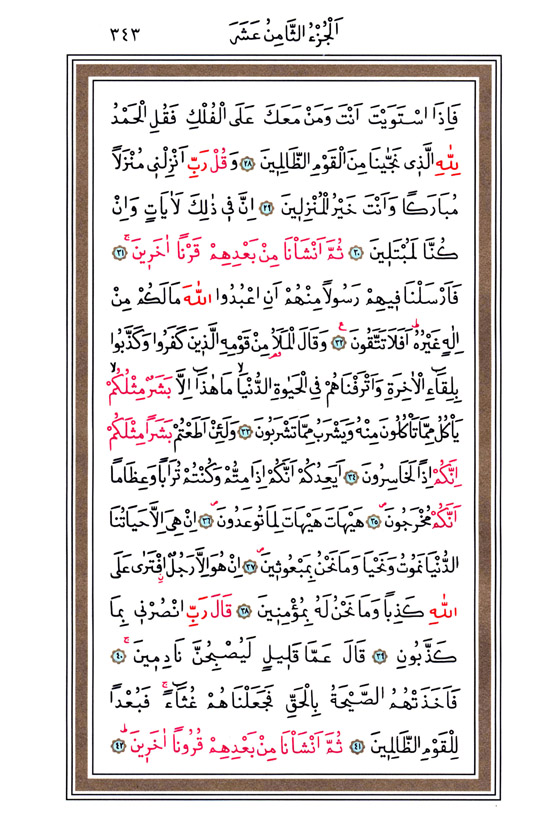 اَلْجُزْءُ الثَّامِنُ عَشَرَ ٣٤٣
فَاِذَا اسْتَوَيْتَ اَنْتَ وَمَنْ مَعَكَ عَلَى الْفُلْكِ فَقُلِ الْحَمْدُ
لِلّٰهِ الَّذ۪ي نَجّٰينَا مِنَ الْقَوْمِ الظَّالِم۪ينَ ﴿٢٨﴾ وَقُلْ رَبِّ اَنْزِلْن۪ي مُنْزَلاً
مُبَارَكاً وَاَنْتَ خَيْرُ الْمُنْزِل۪ينَ ﴿٢٩﴾ اِنَّ ف۪ي ذٰلِكَ لَاٰيَاتٍ وَاِنْ
كُنَّا لَمُبْتَل۪ينَ ﴿٣٠﴾ ثُمَّ اَنْشَأْنَا مِنْ بَعْدِهِمْ قَرْناً اٰخَر۪ينَۚ ﴿٣١﴾
فَاَرْسَلْنَا ف۪يهِمْ رَسُولاً مِنْهُمْ اَنِ اعْبُدُوا اللّٰهَ مَا لَكُمْ مِنْ
اِلٰهٍ غَيْرُهُۜ اَفَلَا تَتَّقُونَ۟ ﴿٣٢﴾ وَقَالَ الْمَلَأُ مِنْ قَوْمِهِ الَّذ۪ينَ كَفَرُوا وَكَذَّبُوا
بِلِقَٓاءِ الْاٰخِرَةِ وَاَتْرَفْنَاهُمْ فِي الْحَيٰوةِ الدُّنْيَاۙ مَا هٰذَٓا اِلَّا بَشَرٌ مِثْلُكُمْۙ
يَأْكُلُ مِمَّا تَأْكُلُونَ مِنْهُ وَيَشْرَبُ مِمَّا تَشْرَبُونَ ﴿٣٣﴾ وَلَئِنْ اَطَعْتُمْ بَشَراً مِثْلَكُمْ
اِنَّكُمْ اِذاً لَخَاسِرُونَ ﴿٣٤﴾ اَيَعِدُكُمْ اَنَّكُمْ اِذَا مِتُّمْ وَكُنْتُمْ تُرَاباً وَعِظَاماً
اَنَّكُمْ مُخْرَجُونَۖ ﴿٣٥﴾ هَيْهَاتَ هَيْهَاتَ لِمَا تُوعَدُونَۖ ﴿٣٦﴾ اِنْ هِيَ اِلَّا حَيَاتُنَا
الدُّنْيَا نَمُوتُ وَنَحْيَا وَمَا نَحْنُ بِمَبْعُوث۪ينَۖ ﴿٣٧﴾ اِنْ هُوَ اِلَّا رَجُلٌۨ افْتَرٰى عَلَى
اللّٰهِ كَذِباً وَمَا نَحْنُ لَهُ بِمُؤْمِن۪ينَ ﴿٣٨﴾ قَالَ رَبِّ انْصُرْن۪ي بِمَا
كَذَّبُونِ ﴿٣٩﴾ قَالَ عَمَّا قَل۪يلٍ لَيُصْبِحُنَّ نَادِم۪ينَۚ ﴿٤٠﴾
فَاَخَذَتْهُمُ الصَّيْحَةُ بِالْحَقِّ فَجَعَلْنَاهُمْ غُثَٓاءًۚ فَبُعْداً
لِلْقَوْمِ الظَّالِم۪ينَ ﴿٤١﴾ ثُمَّ اَنْشَأْنَا مِنْ بَعْدِهِمْ قُرُوناً اٰخَر۪ينَۜ ﴿٤٢﴾